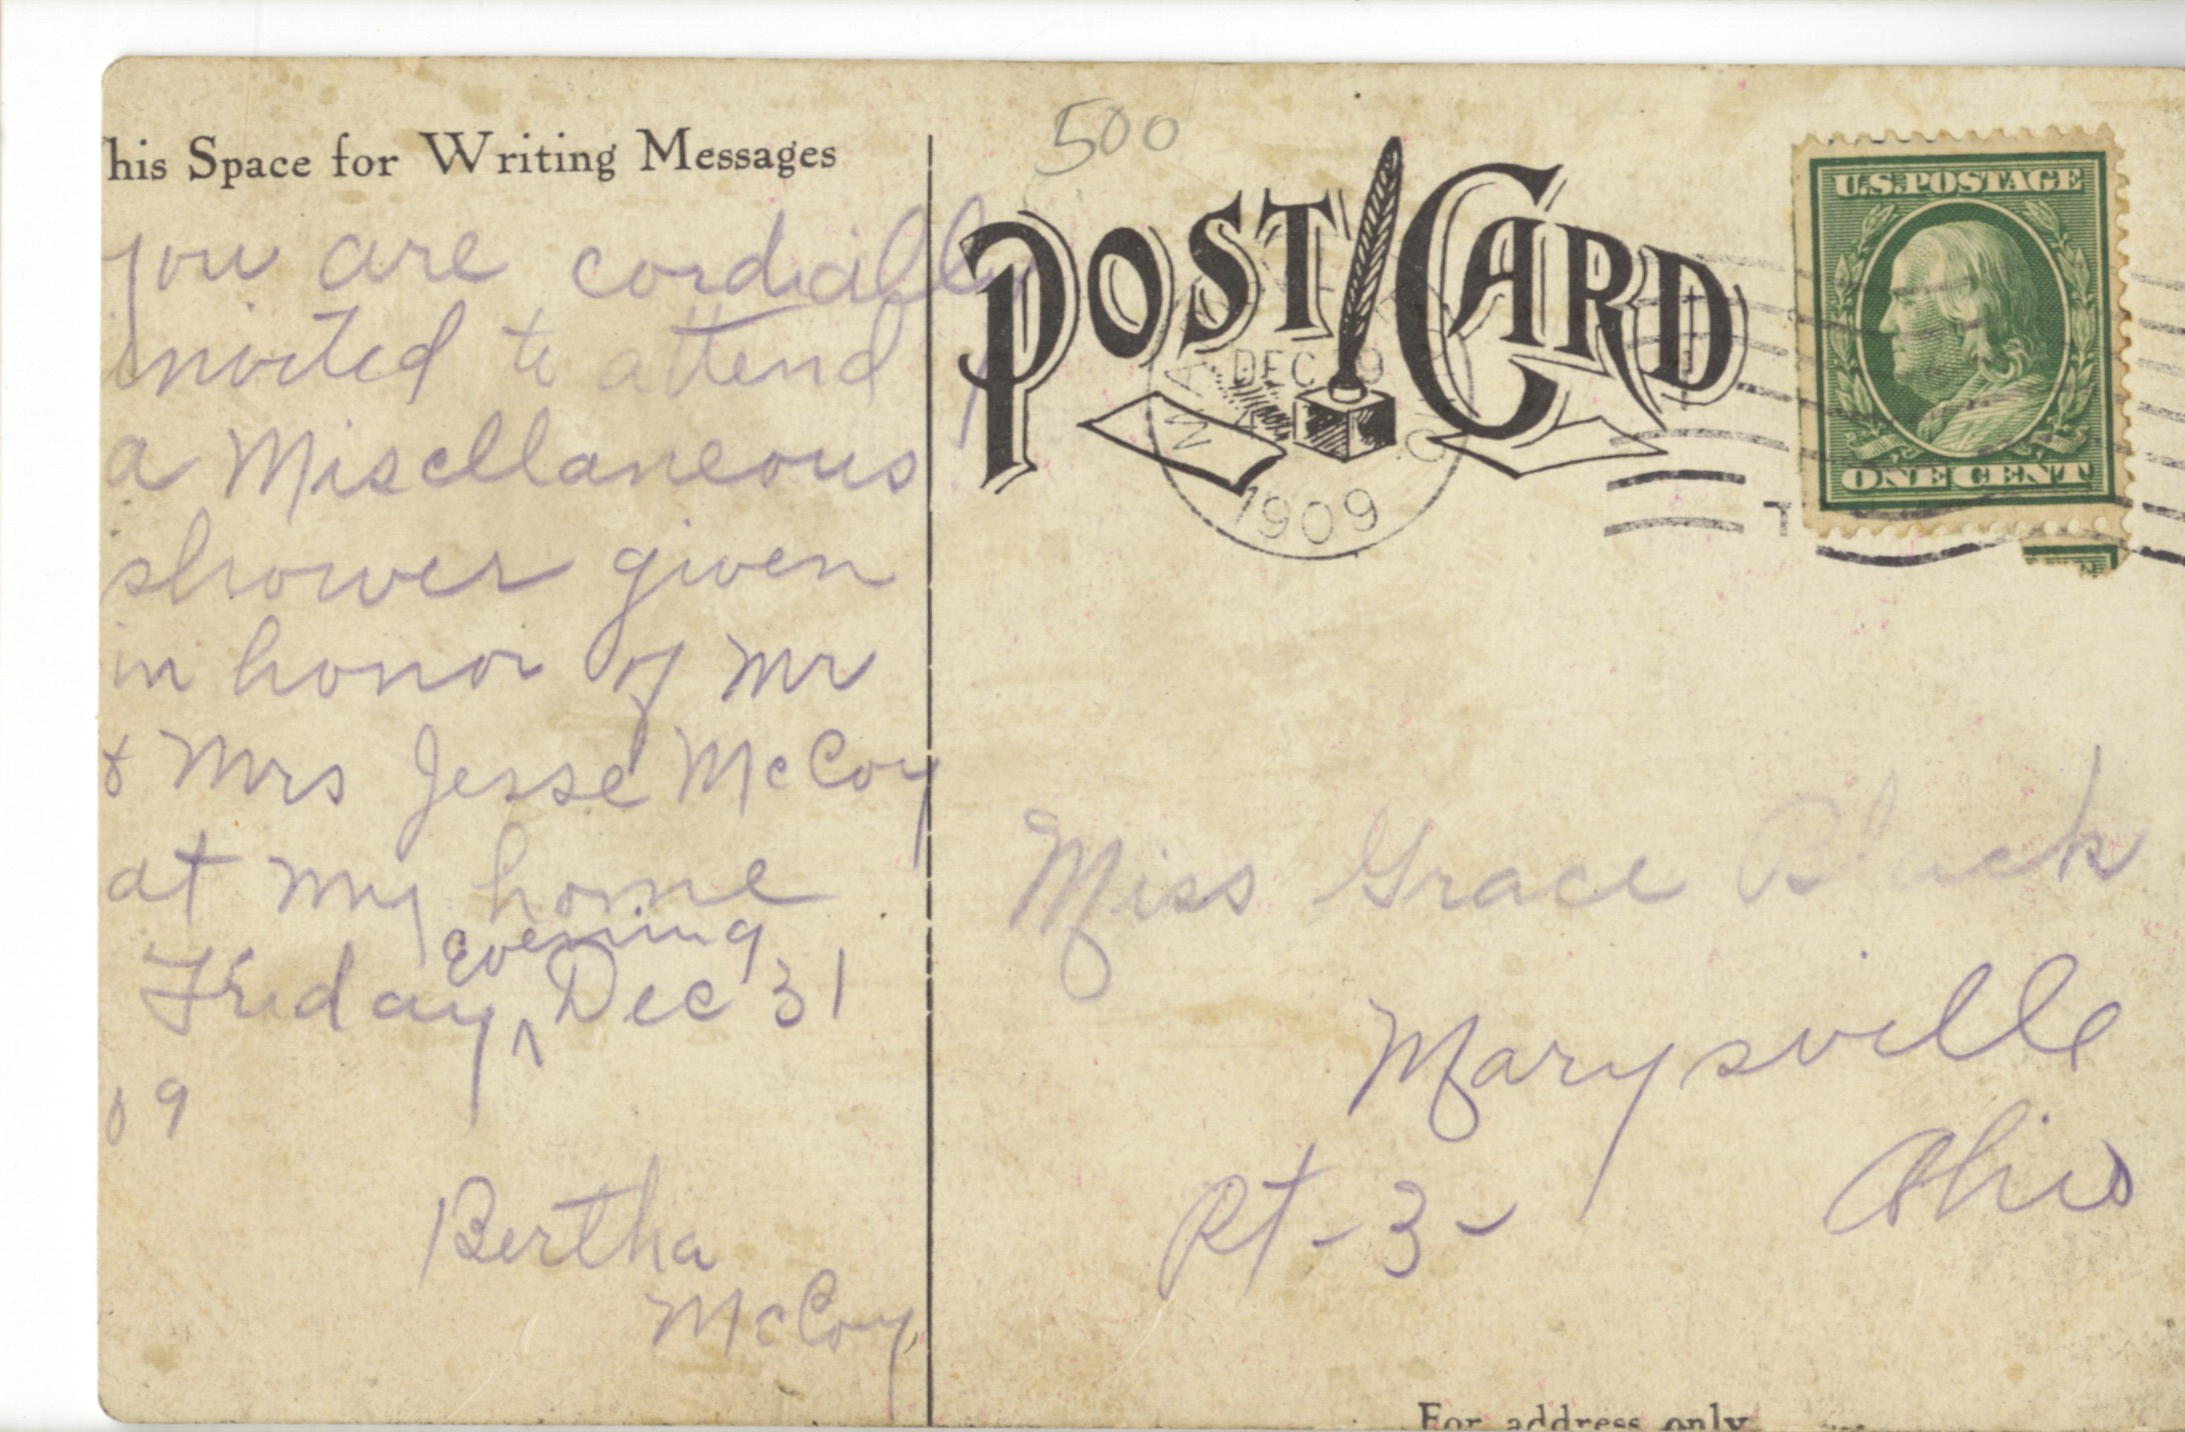 his Space for Writing Messages
you are cordially
invited to attend
a Miscellaneous
shower given
in honor of Mr
& Mrs Jesse McCoy
at my home
Friday evening Dec 31
09
Bertha
McCoy
500
POST CARD
DEC 9
1909
U.S. POSTAGE
ONE CENT
Miss Grace Black
Marysville
Ohio
Rt - 3 -
For address only